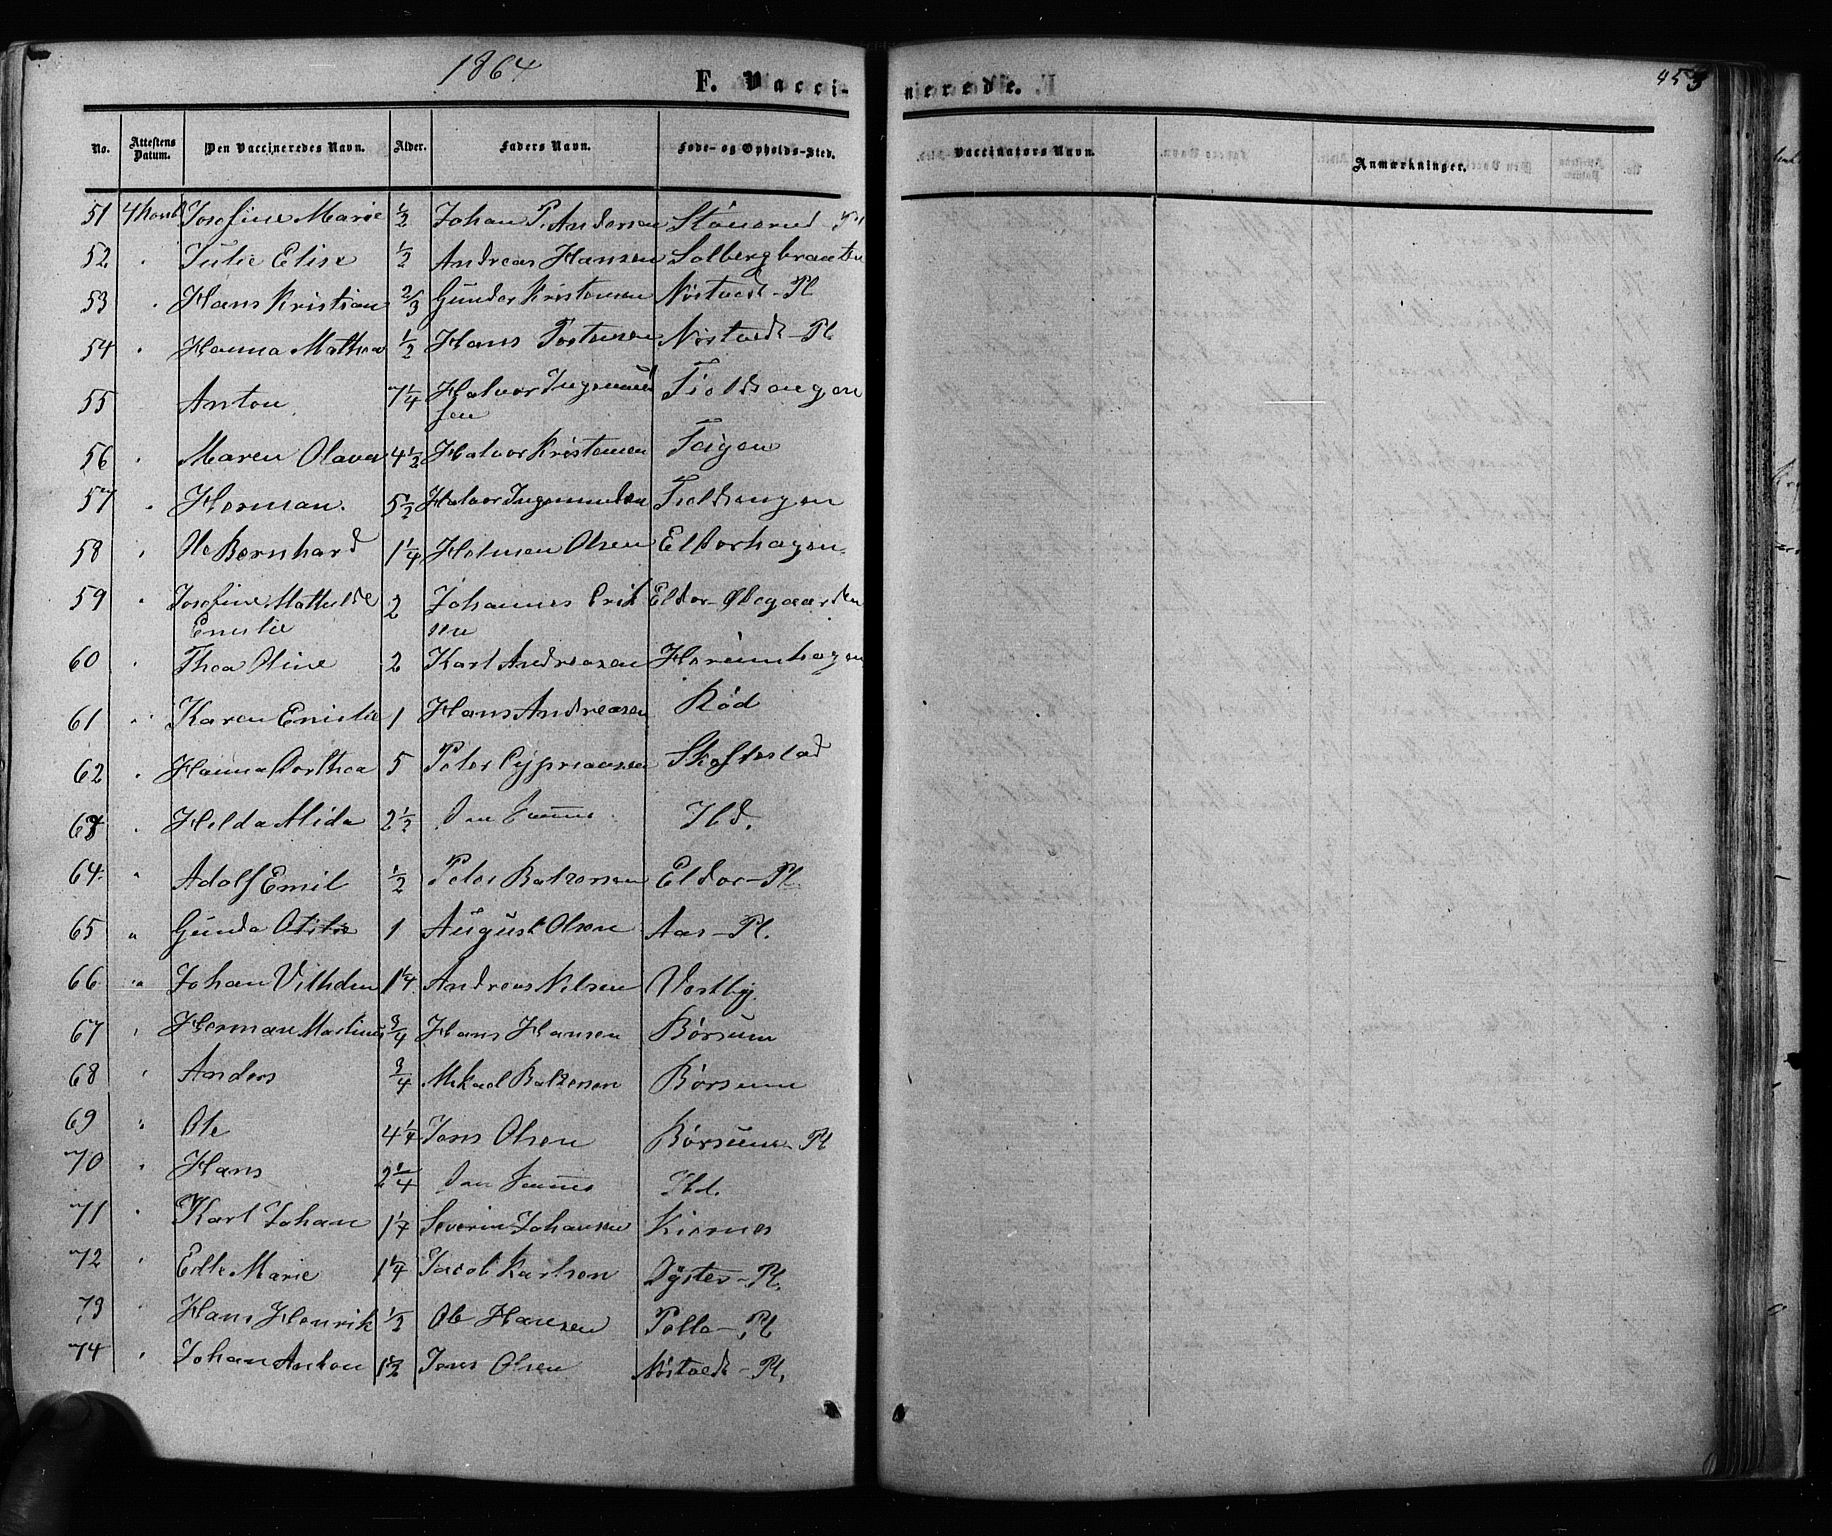 1864
F. Vacci-
nerede.
453
No. Attestens Datum. Den Vaccineredes Navn. Alder. Faders Navn. Føde- og Opholds-Sted. Vaccinators Navn. Anmærkninger.
51 Josefine Marie 1/2 Johan P. Andersen Stönerud - Pl
52 " Julie Elise 1/2 Andreas Hansen Solbergbraaten
53 " Hans Kristian 2/3 Gunder Kristensen Nöstvedt - Pl
54 " Hanna Mathea 1/2 Hans Tostensen Nöstvedt - Pl
55 Anton 7 1/4 Halvor Ingemund
sen
56 " Maren Olava 4 1/2 Halvor Kristensen Teigen
57 " Herman. 5 1/2 Halvor Ingemundsen
58 " Ole Bernhard 1 1/4 Helmen Olsen Eldorhagen
59 " Josefine Mathilde 2 Johannes Erik Eldor-Ødegaarden
Emilie sen
60 " Thea Oline 2 Karl Andreasen
61 " Karen Emilie 1 Hans Andreasen Röd
62 " Hanna Dorthea 5 Peter Cypriansen Skoftestad
63 " Helda Alida 2 1/2 Den Samme Ibd.
64 " Adolf Emil 1/2 Peter Balzersen Eldor - Pl.
65 " Gunda Otilie 1 August Olsen Aas - Pl.
66 " Johan Vilhelm 1 1/4 Andreas Nilsen Vestby.
67 " Herman Martinus 3/4 Hans Hansen Börsum
68 " Anders 3/4 Mikael Balzersen Börsum
69 " Ole 4 1/4 Jens Olsen Börsum - Pl
70 " Hans 2 1/4 Den Samme Ibd.
71 " Karl Johan 1 1/4 Severin Johansen Kiernes
72 " Edle Marie 1 1/4 Jacob Karlsen Dyster - Pl.
73 " Hans Henrik 1/2 Ole Hansen Tolle - Pl
74 " Johan Anton 1 1/2 Jens Olsen Nöstvedt - Pl.